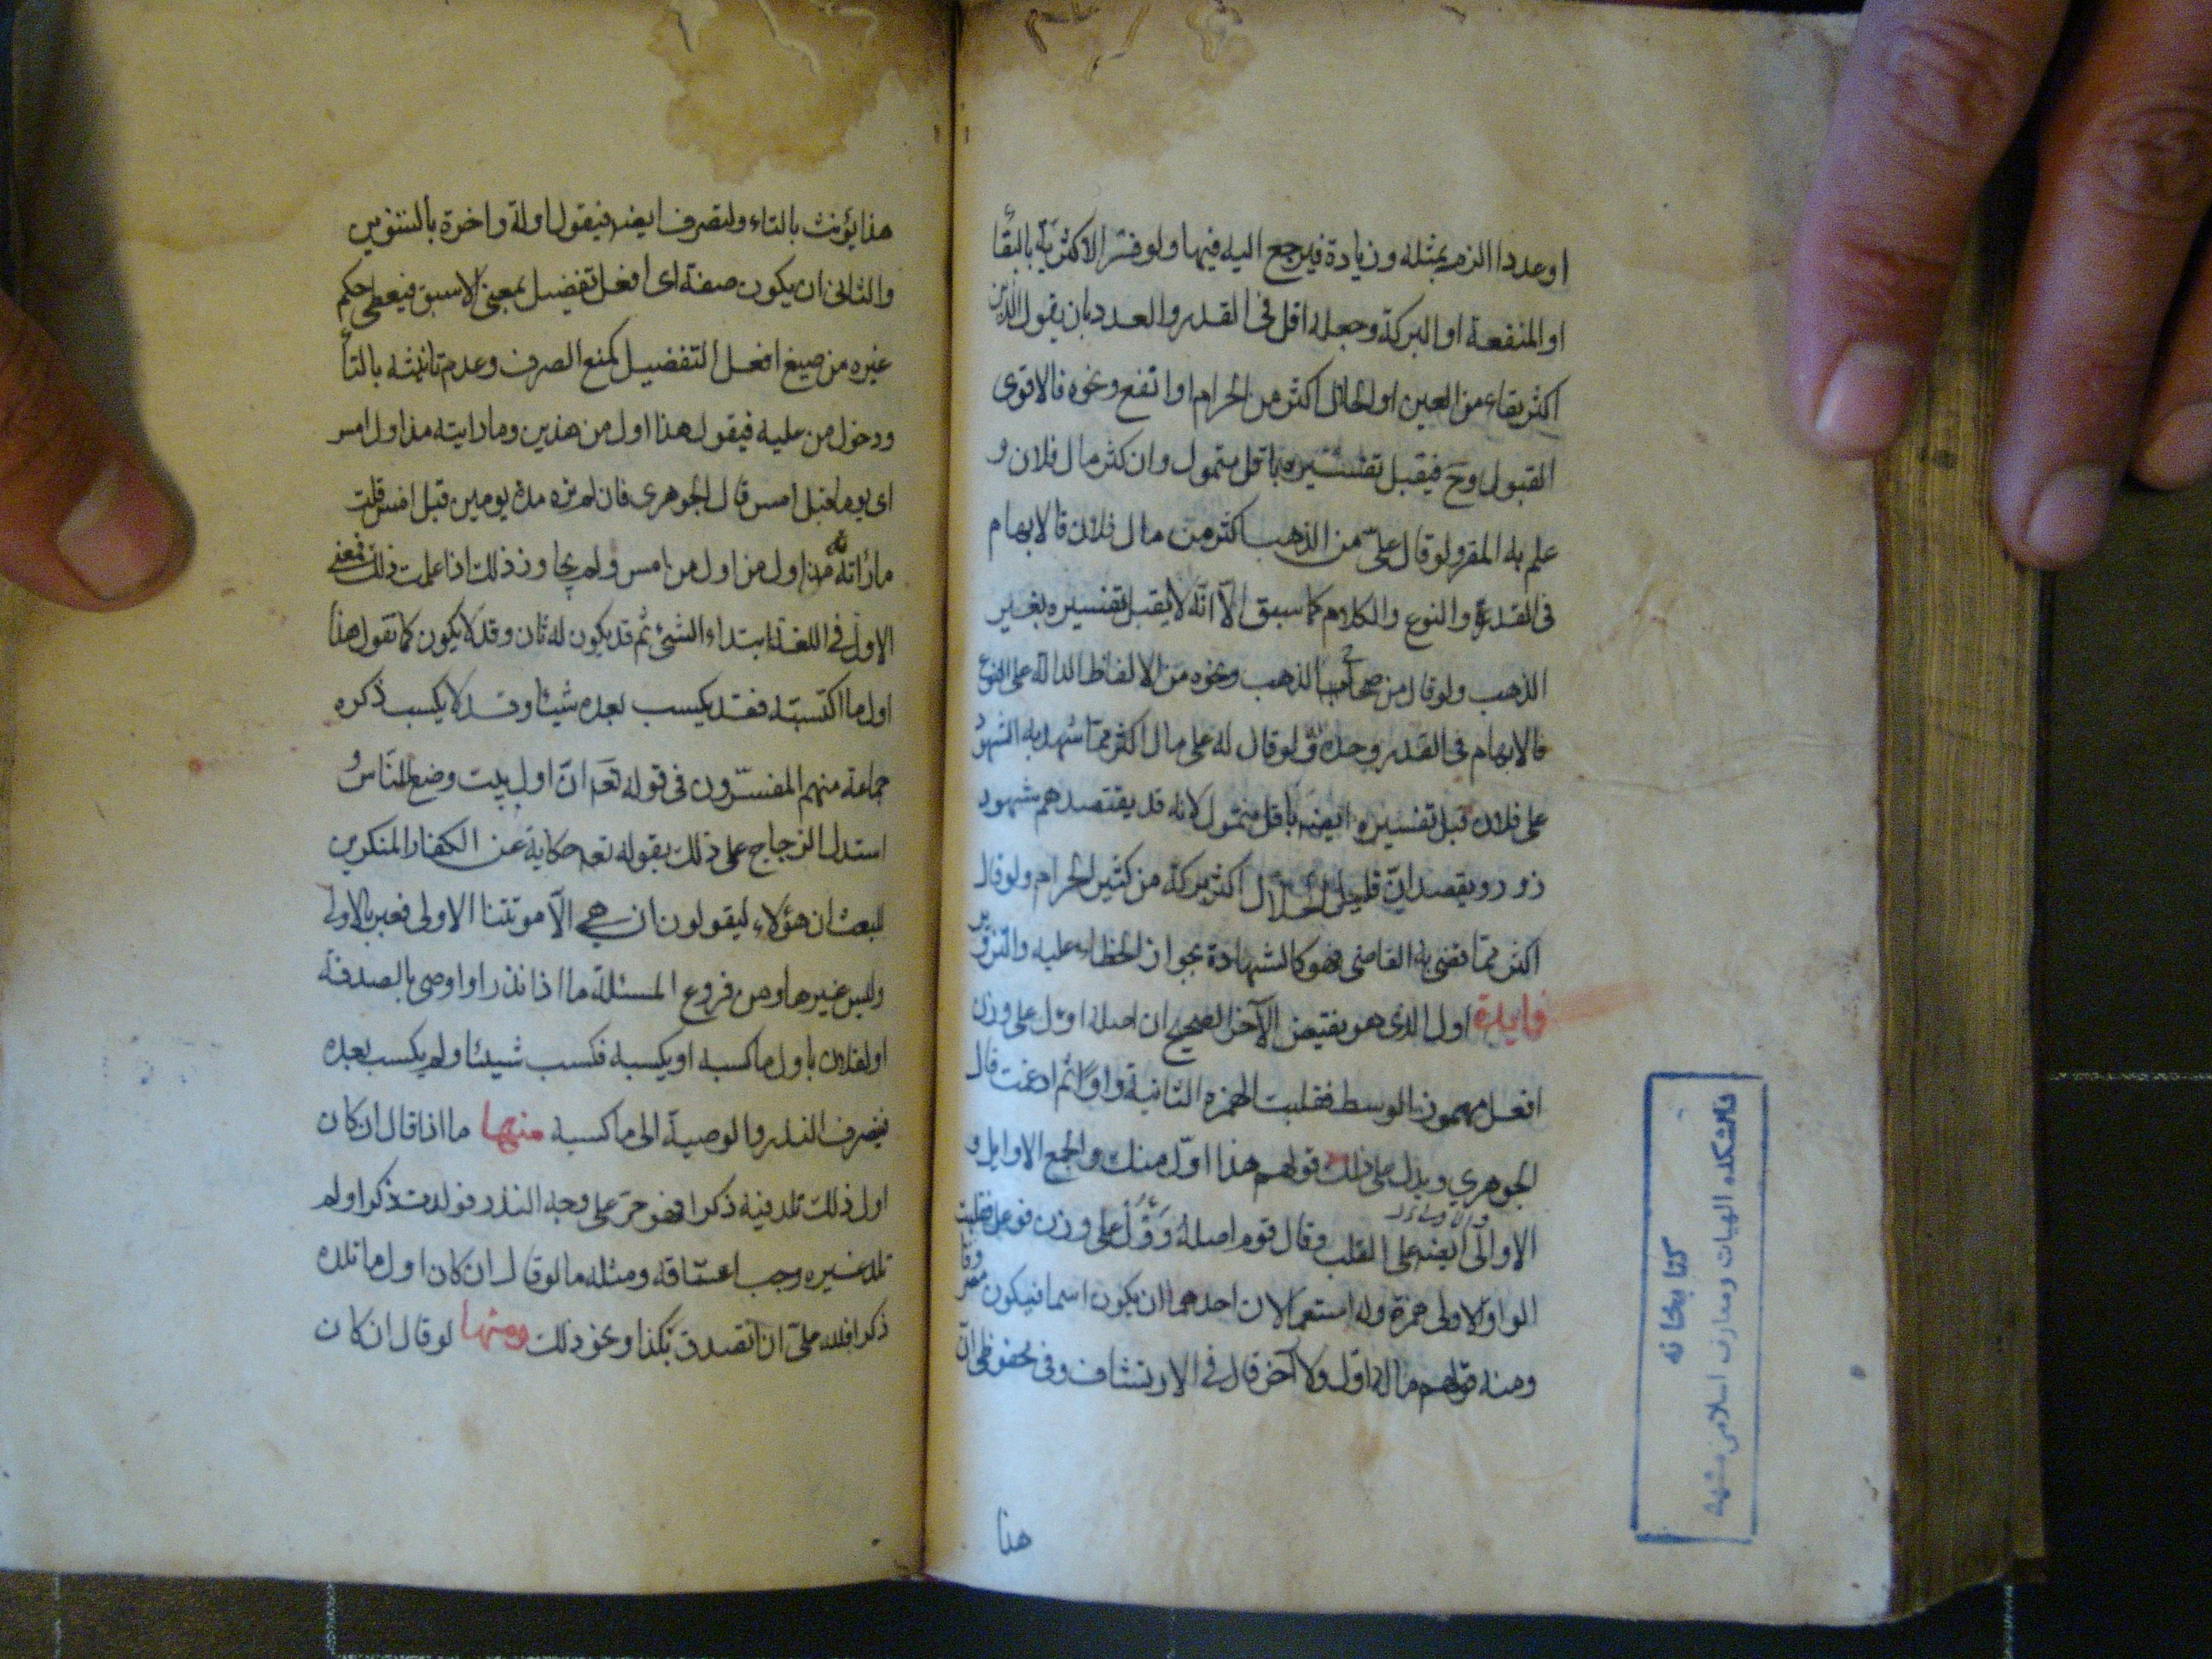 او عددا الزم بمثله وزيادة فيرجع اليه فيها ولو فسر الاكثرية بالبقأ
او المنفعة او البركة وجعله اقل فى القدر والعدد بان يقول الدين
اكثر بقاء من العين او الحلال اكثر من الحرام او انفع ونحوه فالاقوى
القبول وح فيقبل تفسيره باقل متمول وان كثر مال فلان و
علم به المقر ولو قال علىّ من الذهب اكثر من مال فلان فالابهام
فى القدر والنوع والكلام كما سبق الّا انّه لا يقبل تفسيره بغير
الذهب ولو قال من صحاح الذهب ونحوه من الالفاظ الدالة على النوع
فالابهام فى القدر وحده ولو قال له على مال اكثر ممّا شهد به الشهود
على فلان قبل تفسيره ايضه باقل متمول لانه قد يعتقدهم شهود
زور ويقصد انّ قليل الحلال اكثر بركة من كثير الحرام ولو قال
اكثر ممّا قضى به القاضى فهو كالشهادة بجواز الخطاء عليه والتزوير
فايدة اول الذى هو نقيض الآخر الصحيح ان اصله اوئل على وزن
افعل مهموز الوسط فقلبت الهمزة الثانية واوًا ثم ادغمت قال
الجوهري ويدل على ذلك قولهم هذا اوّل منك والجمع الاوايل و
الاوالى ايضه على القلب وقال قوم اصله وَوْأَل على وزن فوعل فقلبت
الواو الاولى همزة وله استعمالان احدهما ان يكون اسما فيكون مصر
وفا
ومنه قولهم ماله اوّل ولا آخر قال فى الارتشاف وفى محفوظى انّ
هذا
هذا يؤنث بالتاء وليصرف ايضه فيقول اولة واخرة بالتنوين
والثانى ان يكون صفة اى افعل تفضيل بمعنى الاسبق فيعطى حكم
غيره من صيغ افعل التفضيل كمنع الصرف وعدم تانيثه بالتأ
ودخول من عليه فيقول هذا اول من هذين وما رايته مذ اول امس
اى يوما قبل امس قال الجوهرى فان لم تره مذ يومين قبل امس قلت
ما رأيته مذ اول من اول من امس ولم يجاوز ذلك اذا علمت ذلك فمعنى
الاول فى اللغة ابتداء الشئ ثم قد يكون له ثان وقد لا يكون كما تقول هذا
اول ما اكتسبته فقد يكسب بعده شيئا وقد لا يكسب ذكره
جماعة منهم المفسّرون فى قوله تعم انّ اول بيت وضع للنّاس و
استدل الزجاج على ذلك بقوله تعم حكاية عن الكفار المنكرين
للبعث ان هؤلاء ليقولون ان هى الّا موتتنا الاولى فعبر بالاولى
وليس غيرها ومن فروع المسئلة ما اذا نذر او اوصى بالصدقة
او لفلان باول ما كسبه او يكسبه فكسب شيئا ولم يكسب بعده
فيصرف النذر والوصية الى ما كسبه منها ما اذا قال ان كان
اول ذلك تلد فيه ذكرا فهو حرّ على وجه النذر فولدت ذكرا ولم
تلد غيره وجب اعتاقه ومثله ما لو قال ان كان اول ما تلده
ذكرا فلله علىّ ان اتصدق بكذا ونحو ذلك ومنها لو قال ان كان
كتابخانه
دانشكده الهيات ومعارف اسلامى مشهد